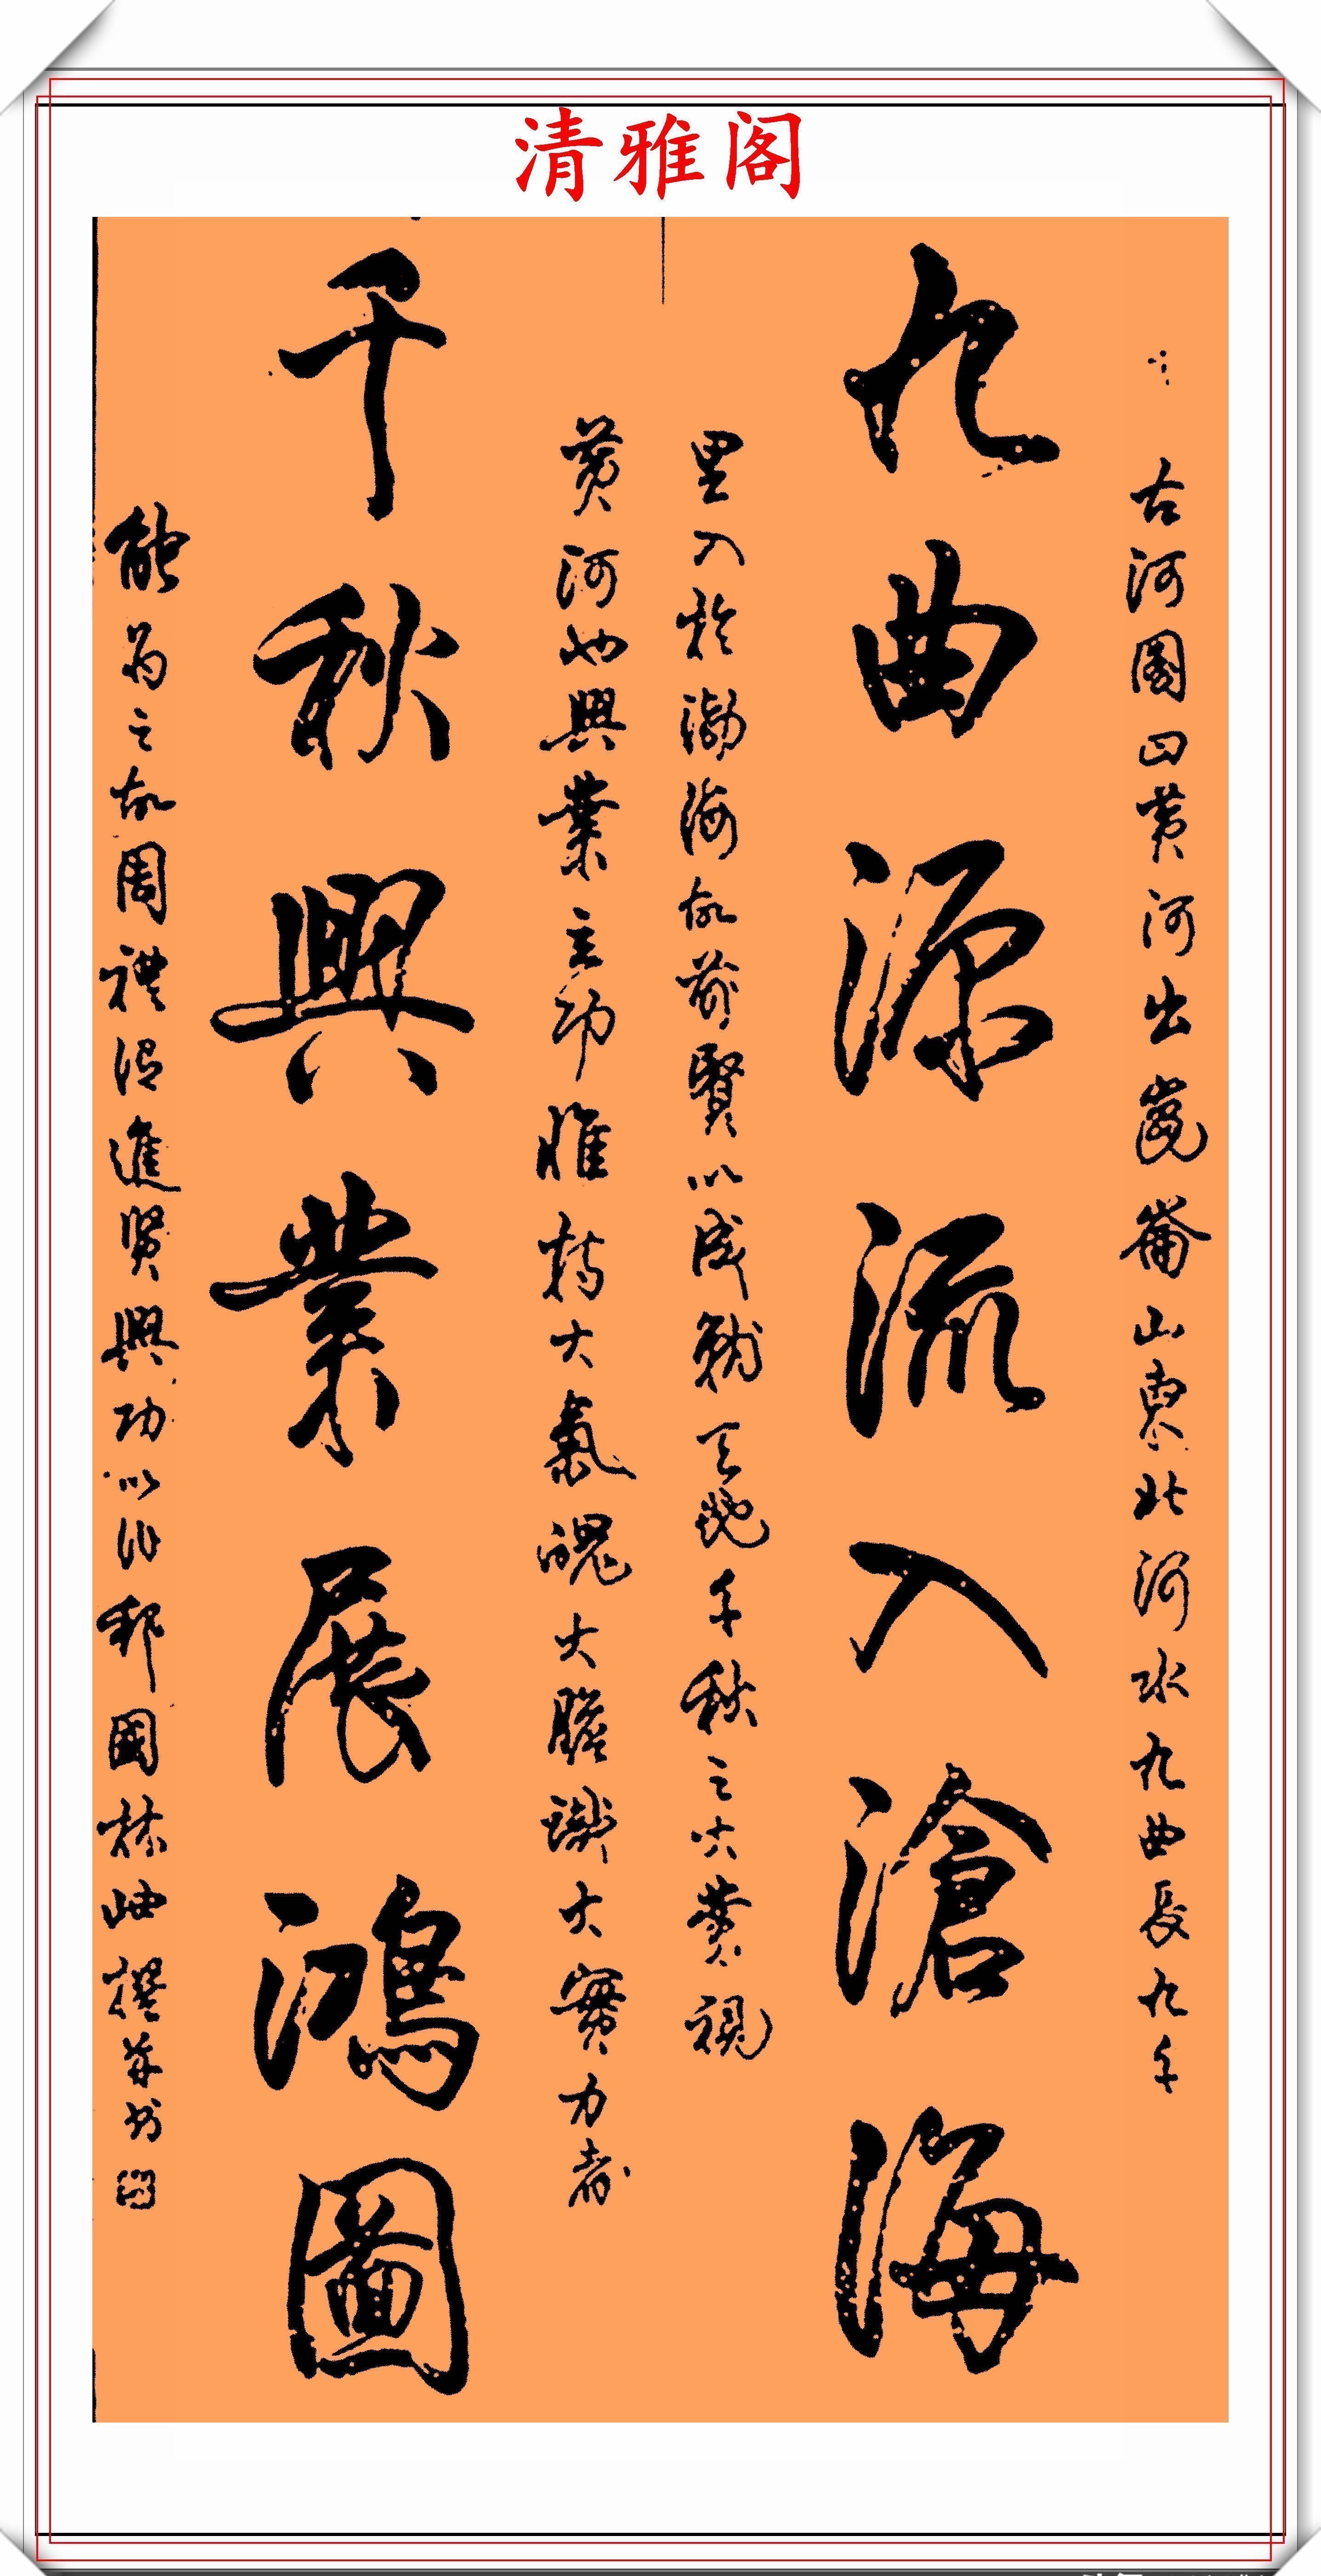 清雅阁
古河圖曰黄河出崑崙山東北河水九曲長九千
九曲源流入滄海
里入於渤海故前賢以成就天地千秋之大業視
黄河也興業立功惟持大氣魄大膽識大實力者
千秋興業展鴻圖
能为之故周禮謂進賢興功以作邦國林岫撰并书